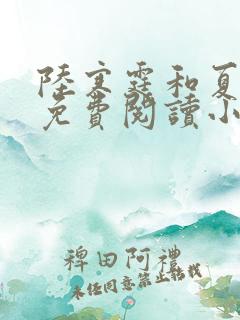 陸寒霆和夏
免費閱讀小
稗田阿禮
未經同意禁止轉載